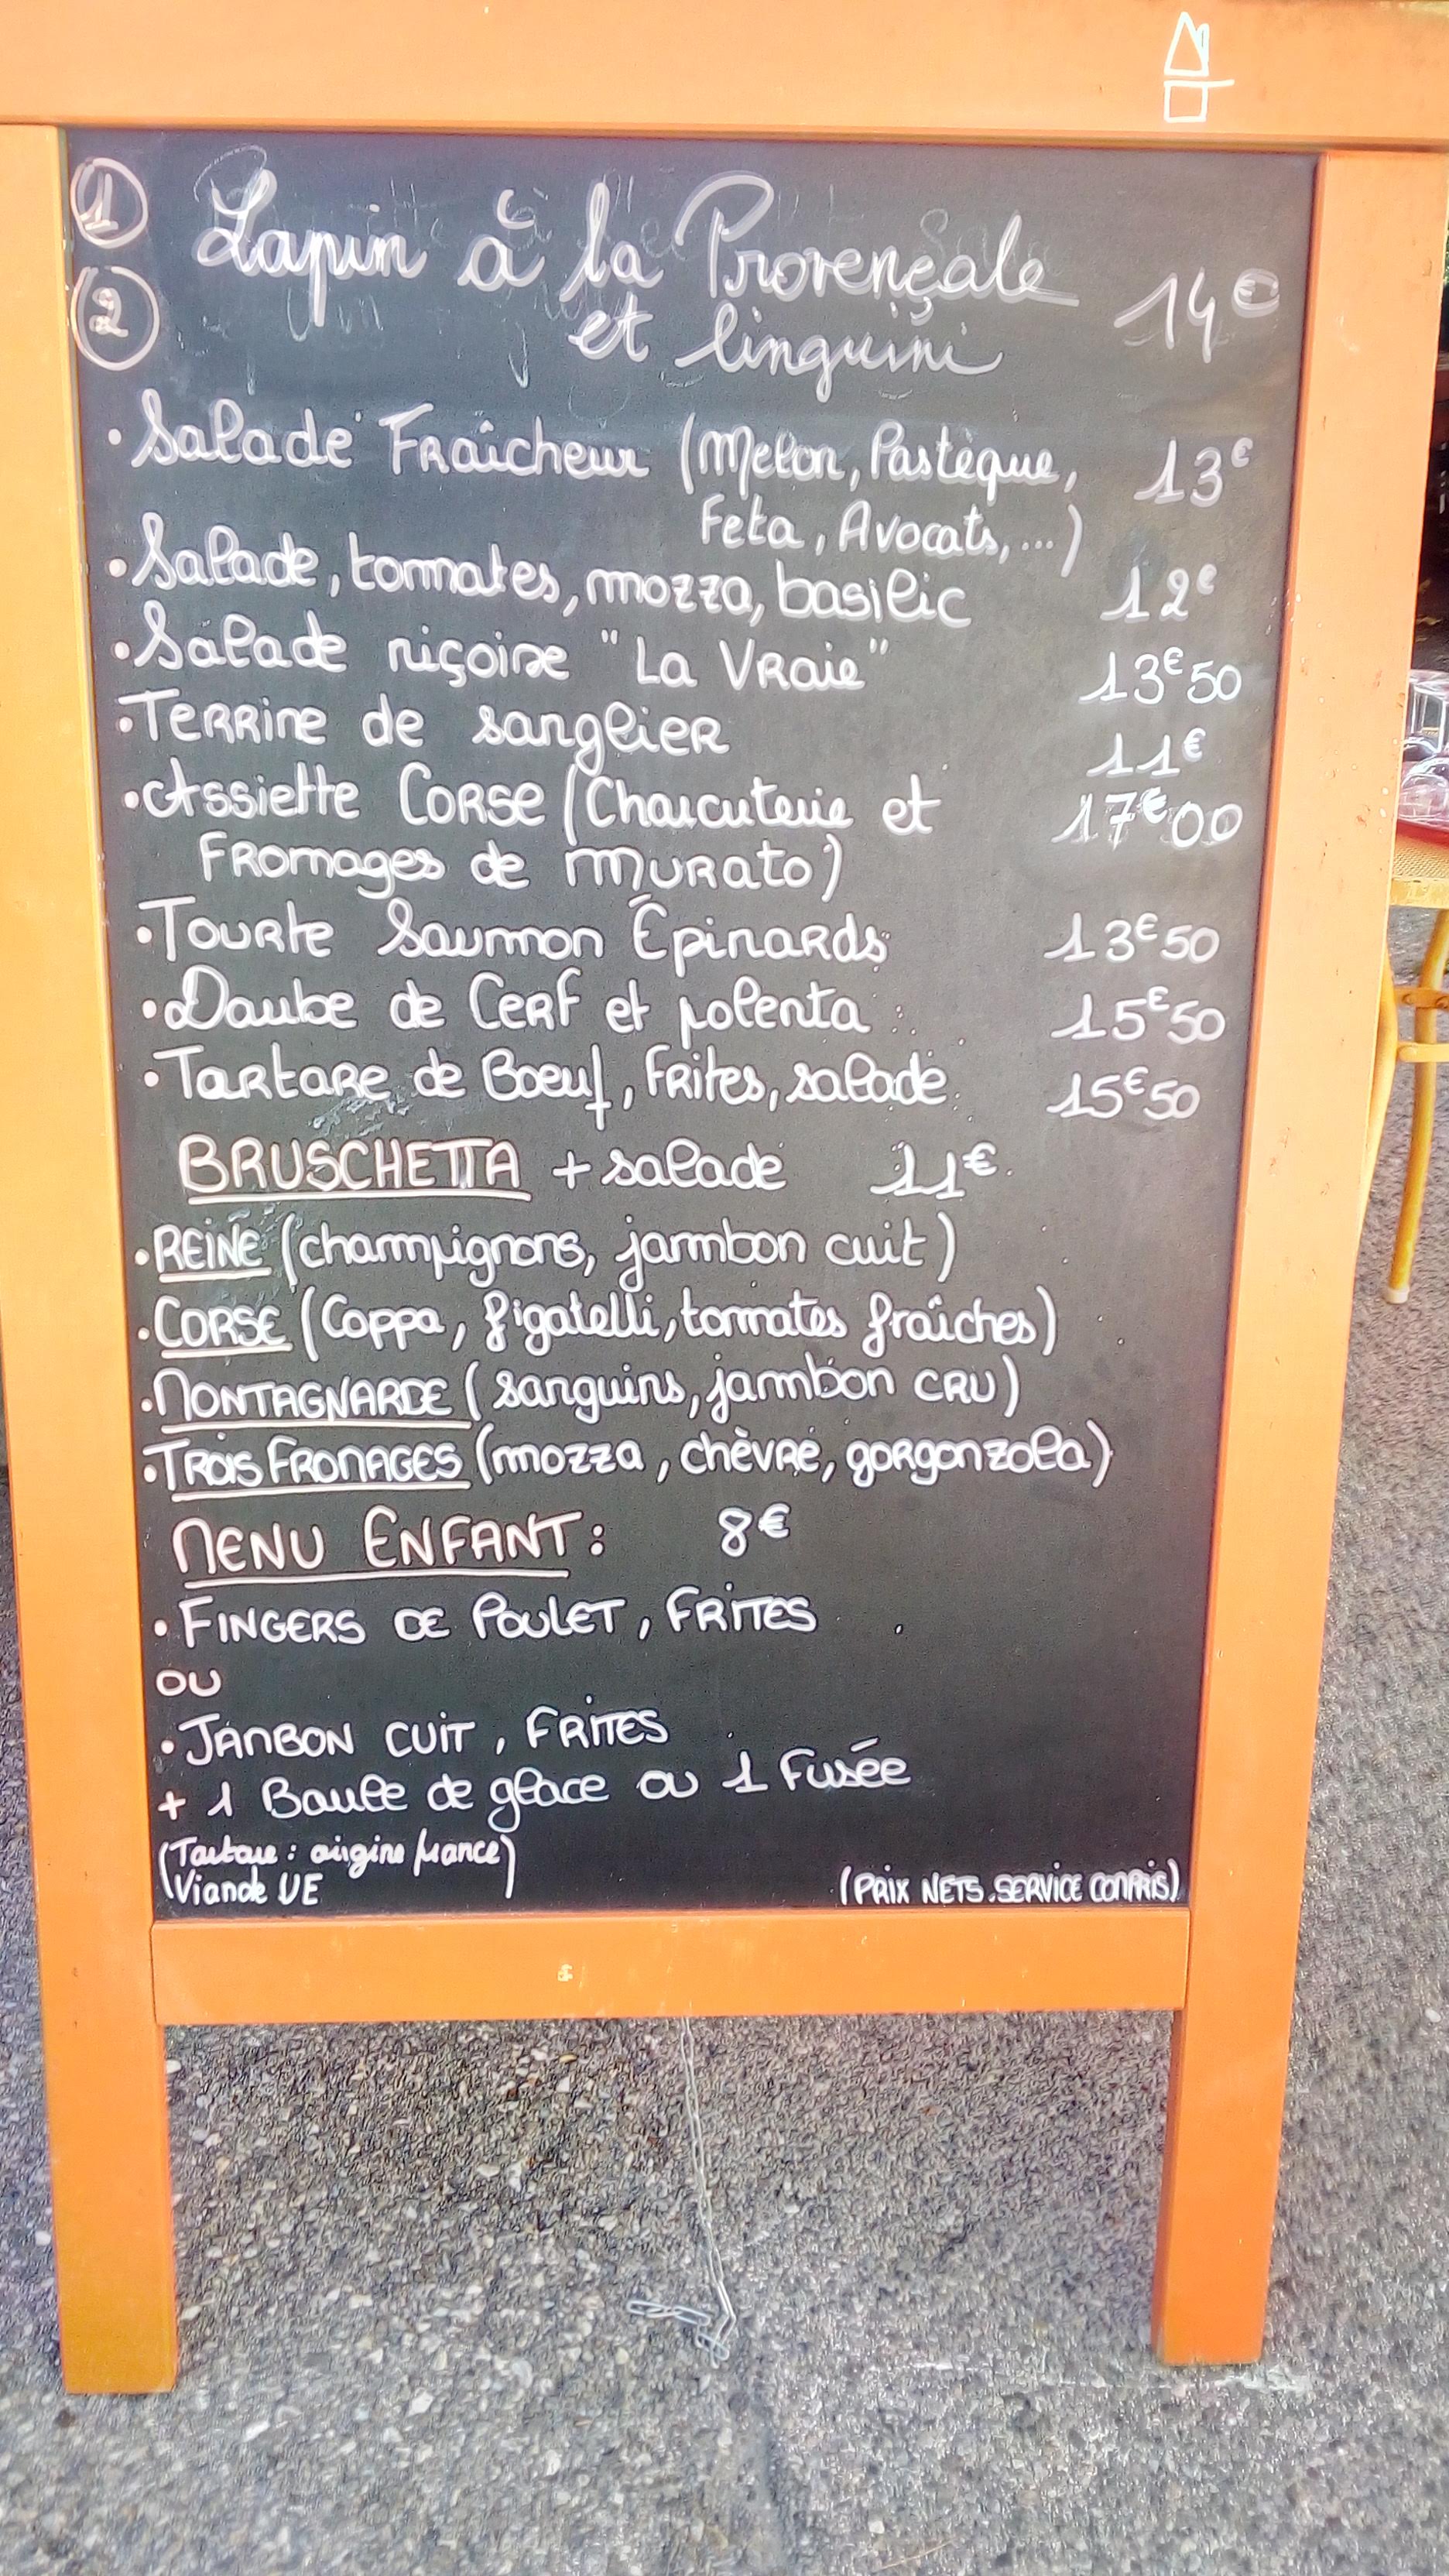 1 Lapin à la Provençale
2 et linguini 14€
• Salade Fraîcheur (Melon, Pastèque, 13€
Feta, Avocats, ...)
• Salade, tomates, mozza, basilic 12€
• Salade niçoise "La Vraie" 13€50
• Terrine de sanglier 11€
• Assiette Corse (Charcuterie et 17€00
Fromages de Murato)
• Tourte Saumon Épinards 13€50
• Daube de Cerf et polenta 15€50
• Tartare de Boeuf, Frites, salade 15€50
BRUSCHETTA + salade 11€
• REINE (champignons, jambon cuit)
• CORSE (Coppa, figatelli, tomates fraîches)
• MONTAGNARDE (sanguins, jambon CRU)
• TROIS FROMAGES (mozza, chèvre, gorgonzola)
MENU ENFANT: 8€
• FINGERS DE POULET, FRITES
OU
• JAMBON CUIT, FRITES
+ 1 Boule de glace ou 1 Fusée
(Tartare : origine france)
Viande UE
(PRIX NETS. SERVICE COMPRIS)